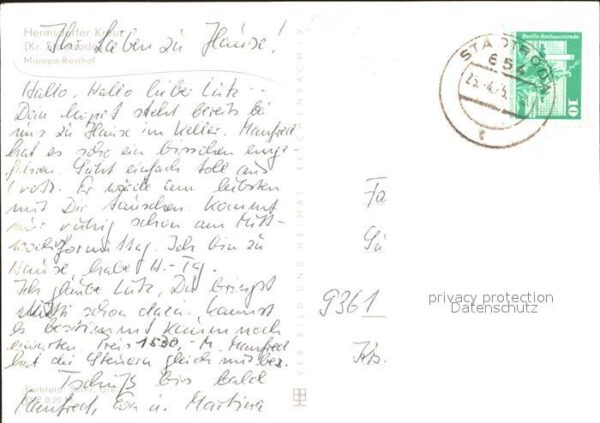 Hermsdorfer Kreuz
(Kr. Stadtroda)
Mitropa-Rasthof
Ihr Lieben zu Hause!
Hallo, Hallo lieber Lutz..
Dein steht bereits bei
uns zu Hause im Keller. Manfred
hat es schon ein bisschen einge-
fahren. Sieht einfach toll aus
(rot). Er würde am liebsten
mit Dir tauschen. Kommt
nur ruhig schon am Mitt-
wochvormittag. Ich bin zu
Hause, habe H.-Tag.
Ich glaube Lutz, Du bringst
schon dazu. Kannst
es bestimmt kaum noch
erwarten. Preis 1530,- M. Manfred
hat die gleich mit bez.
Tschüß bis bald
Manfred, Eva u. Martina
VEB BILD UND HEIMAT
STADTRODA
654
Berlin-Rathausstraße
10
Fa
9361
privacy protection
Datenschutz